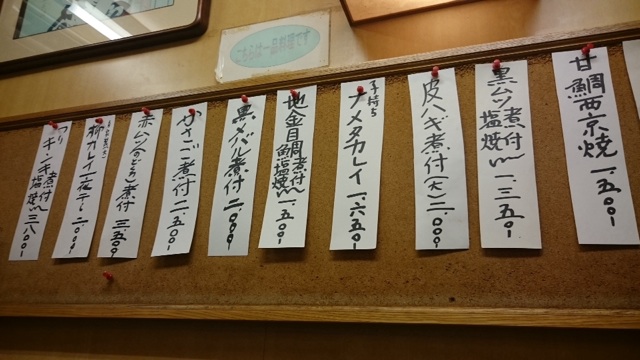 こちらは一品料理です
甘鯛西京焼 一、五〇〇
黒ムツ煮付
塩焼 一、三五〇
皮ハギ煮付(大)二、〇〇〇
子持ち
ナメタカレイ 一、六五〇
地金目鯛煮付
塩焼 一、五〇〇
黒メバル煮付 二、〇〇〇
かさご煮付 二、五〇〇
赤ムツ(のどぐろ)煮付 三、五〇〇
柳カレイ一夜干し 二、〇〇〇
つり
キンキ煮付
塩焼 三、八〇〇